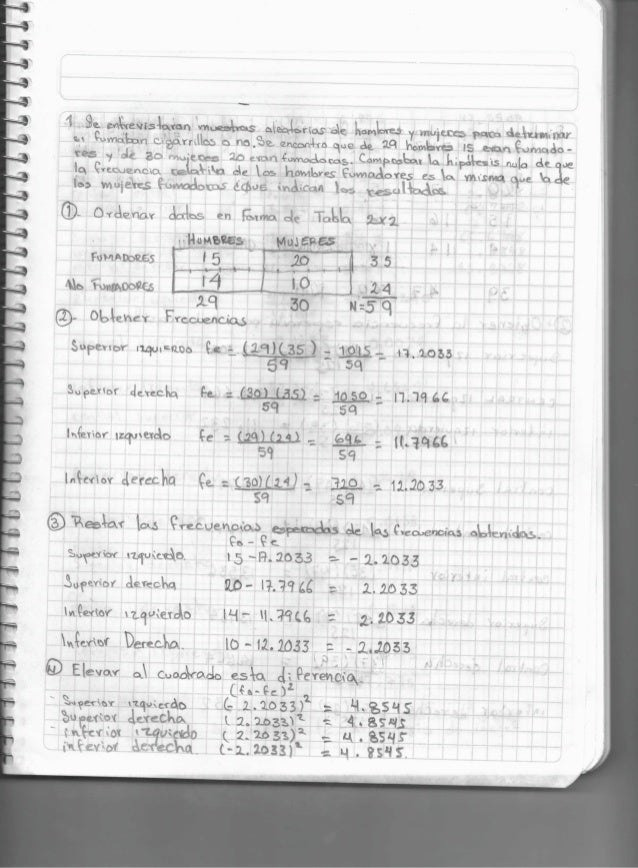 1. Se entrevistaron muestras aleatorias de hombres y mujeres para determinar
si fumaban cigarrillos o no, Se encontro que de 29 hombres 15 eran fumado-
res y de 30 mujeres 20 eran fumadoras. Comprobar la hipótesis nula de que
la frecuencia relativa de los hombres fumadores es la misma que la de
las mujeres fumadoras ¿Que indican los resultados
① Ordenar datos en Forma de Tabla 2x2
HOMBRES MUJERES
FUMADORES 15 20 35
No FUMADORES 14 10 24
29 30 N=59
②- Obtener Frecuencias
Superior IZQUIERDO fe = (29)(35) / 59 = 1015 / 59 = 17.2033
Superior derecha fe = (30)(35) / 59 = 1050 / 59 = 17.7966
Inferior izquierdo fe = (29)(24) / 59 = 696 / 59 = 11.7966
Inferior derecha fe = (30)(24) / 59 = 720 / 59 = 12.2033
③ Restar las frecuencias esperadas de las frecuencias obtenidas.
fo - fe
Superior izquierdo. 15 - 17.2033 = - 2.2033
Superior derecha 20 - 17.7966 = 2.2033
Inferior izquierdo 14 - 11.7966 = 2.2033
Inferior Derecha. 10 - 12.2033 = - 2.2033
④ Elevar al cuadrado esta diferencia.
(fo-fe)²
Superior izquierdo (- 2.2033)² = 4.8545
Superior derecha (2.2033)² = 4.8545
inferior izquierdo (2.2033)² = 4.8545
inferior derecha (-2.2033)² = 4.8545